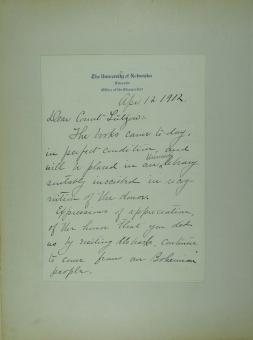 The University of Nebraska
Lincoln
Office of the Chancellor
Apr. 12 1912.
Dear Count Lützow:
The books came to day,
in perfect condition, and
will be placed in our University library
suitably inscribed in recog
nition of the donor.
Expressions of appreciation,
of the honor that you did
us by visiting Nebraska, continue
to come from our Bohemian
people.